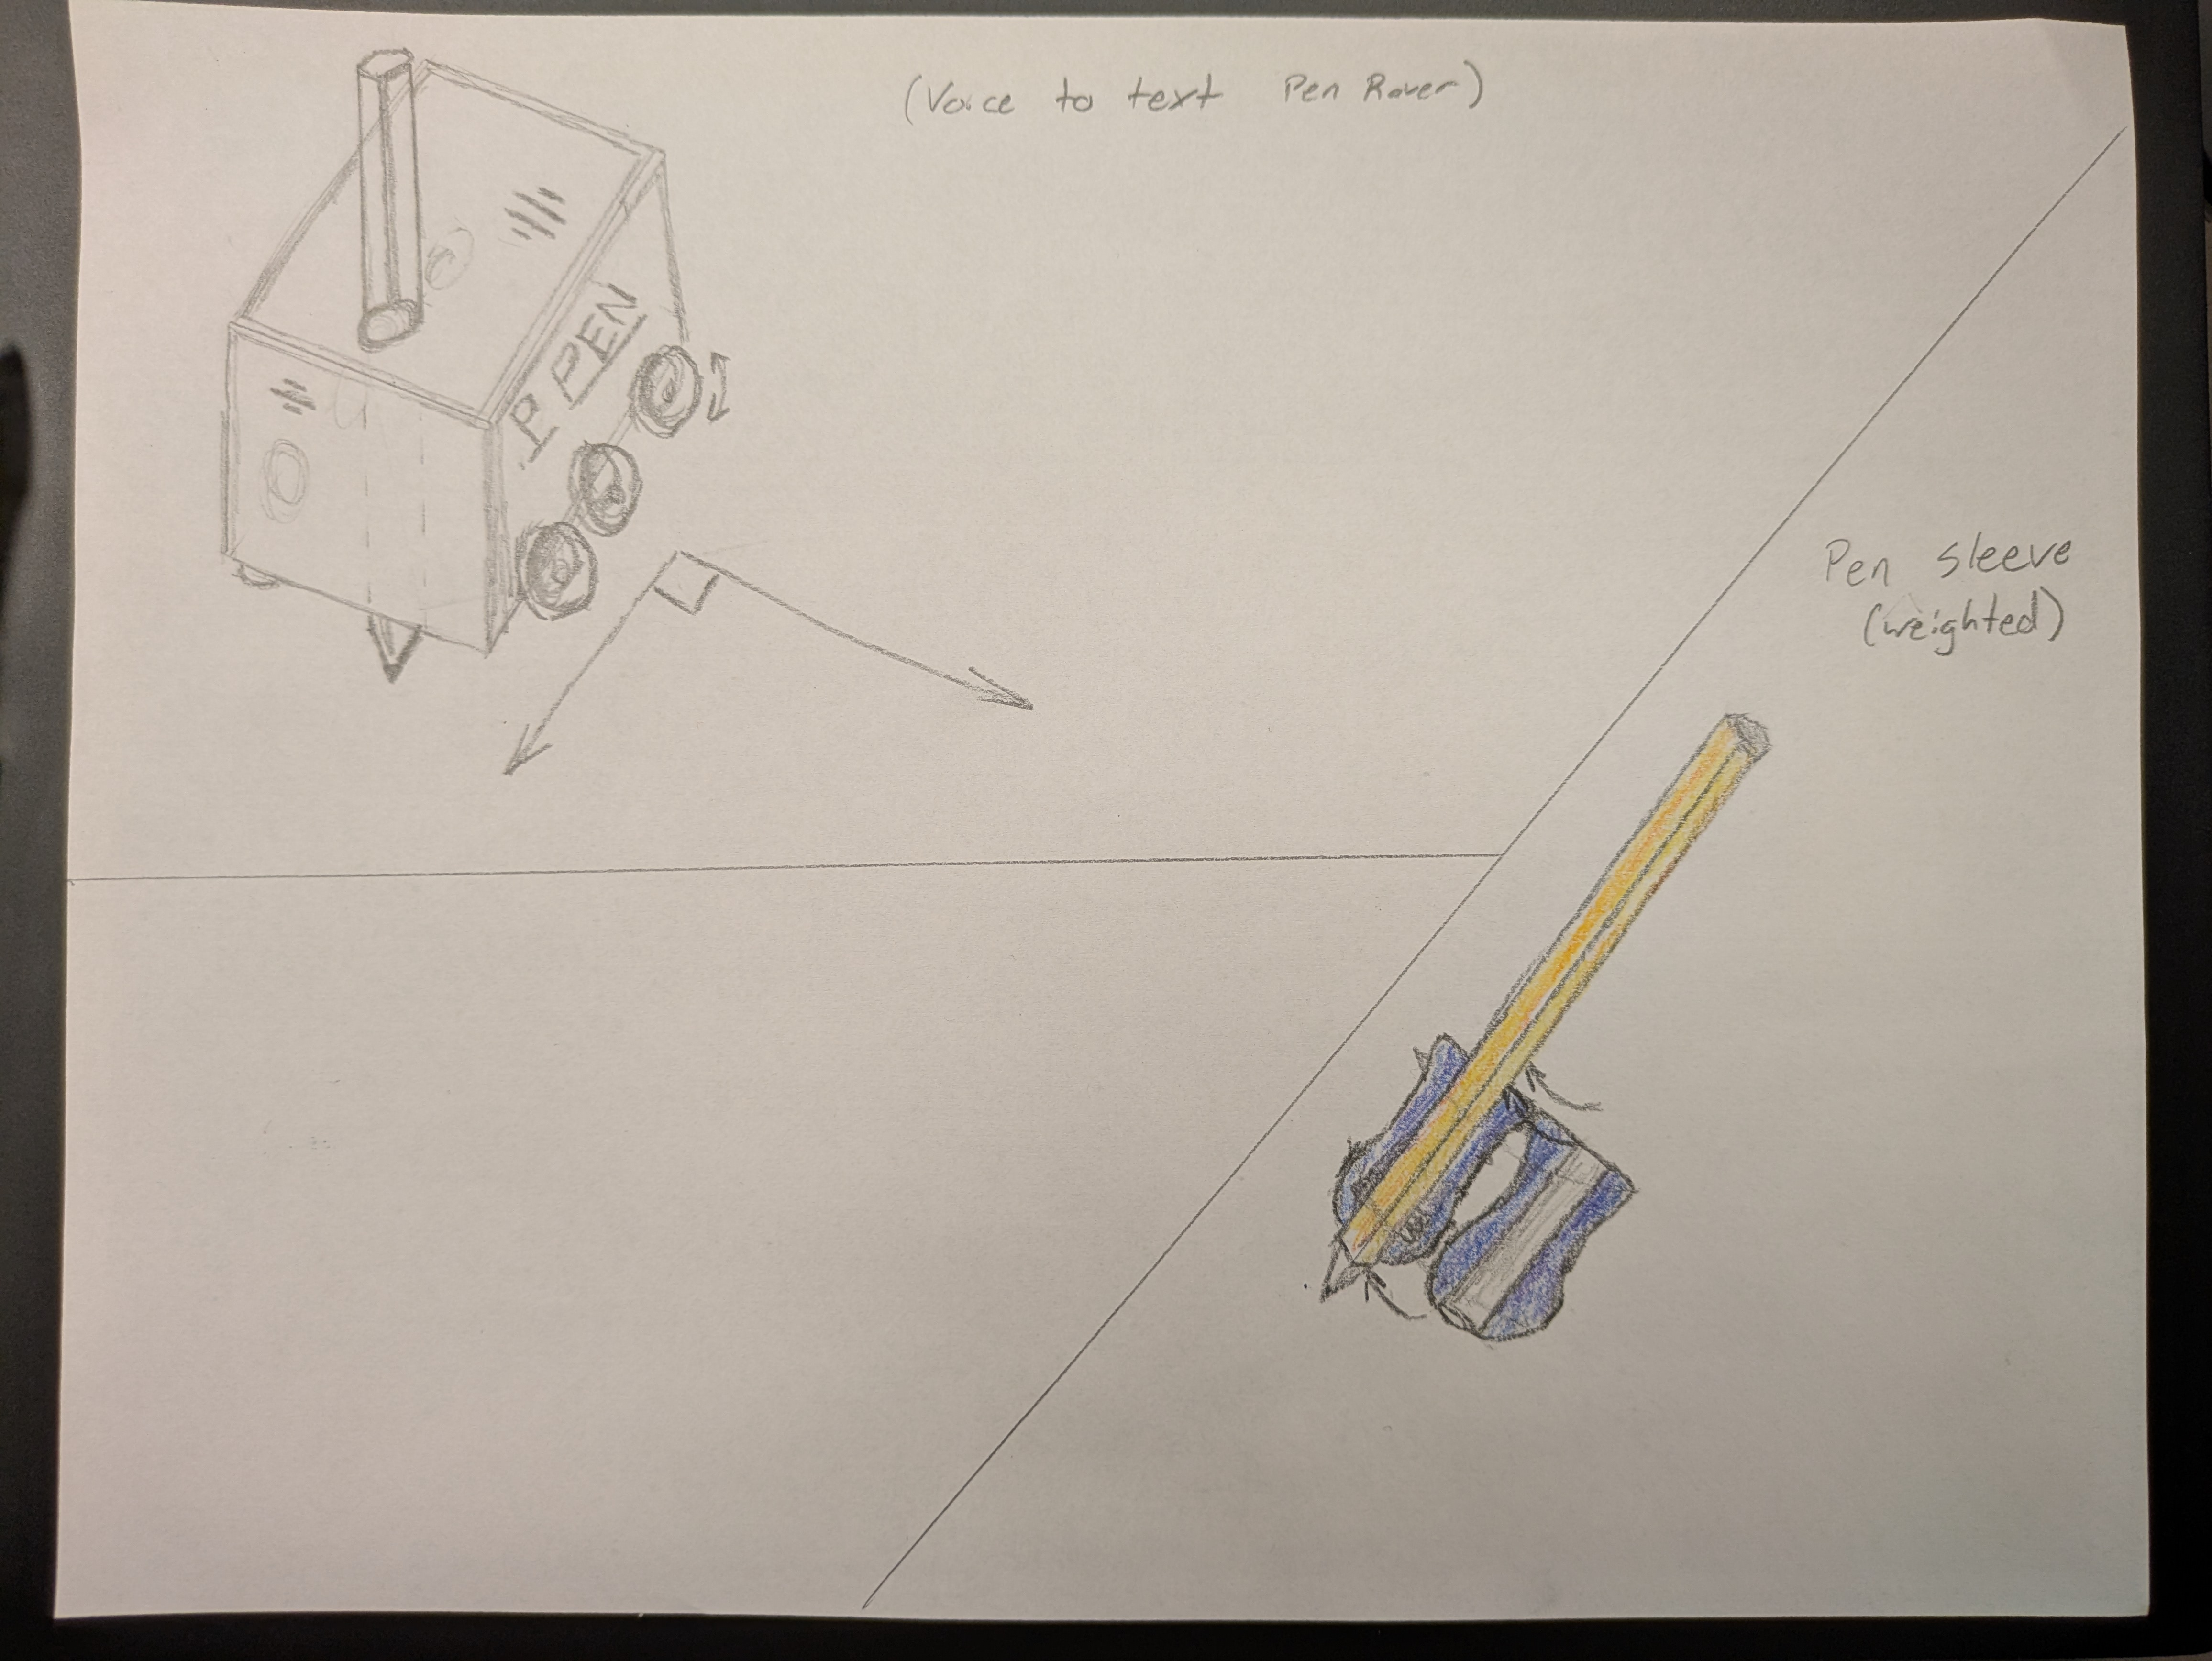 (Voice to text Pen Rover)
P PEN
Pen sleeve
(weighted)